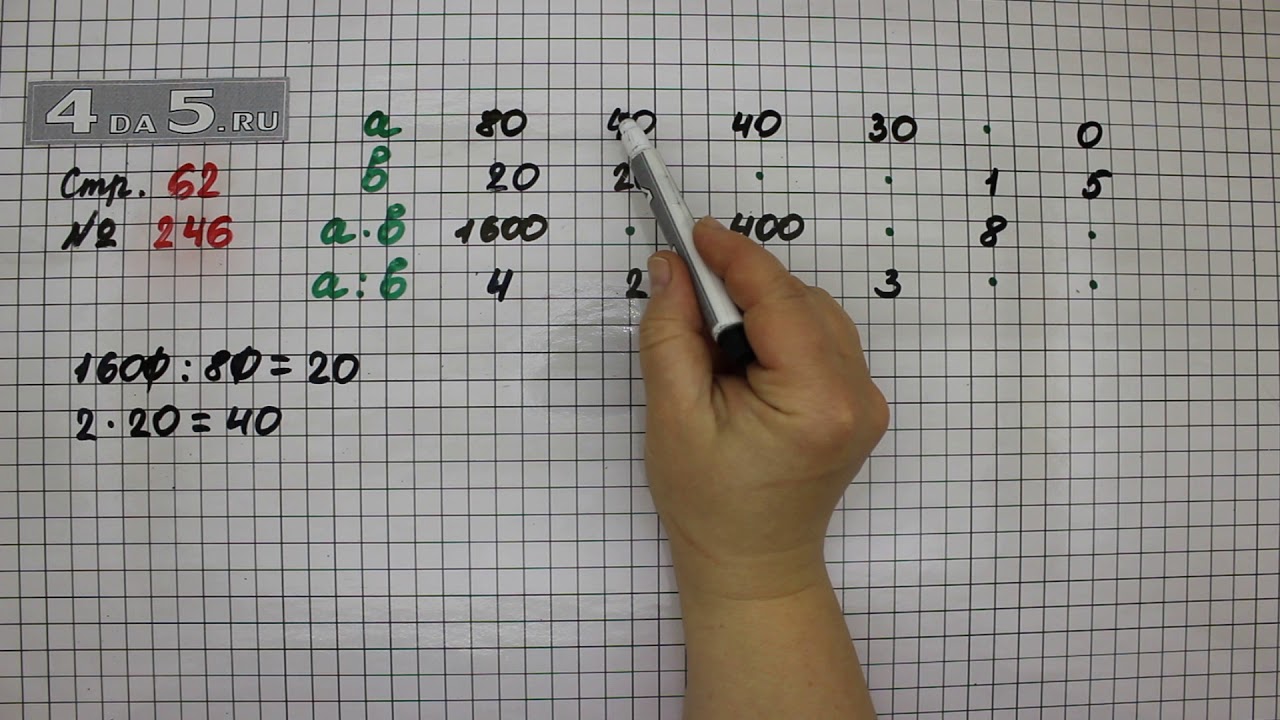 4 DA 5.RU
a 80 40 40 30 · 0
Стр. 62
в 20 2 · · 1 5
№ 246
a · в 1600 · 400 · 8 ·
a : в 4 2 3 · ·
1600 : 80 = 20
2 · 20 = 40